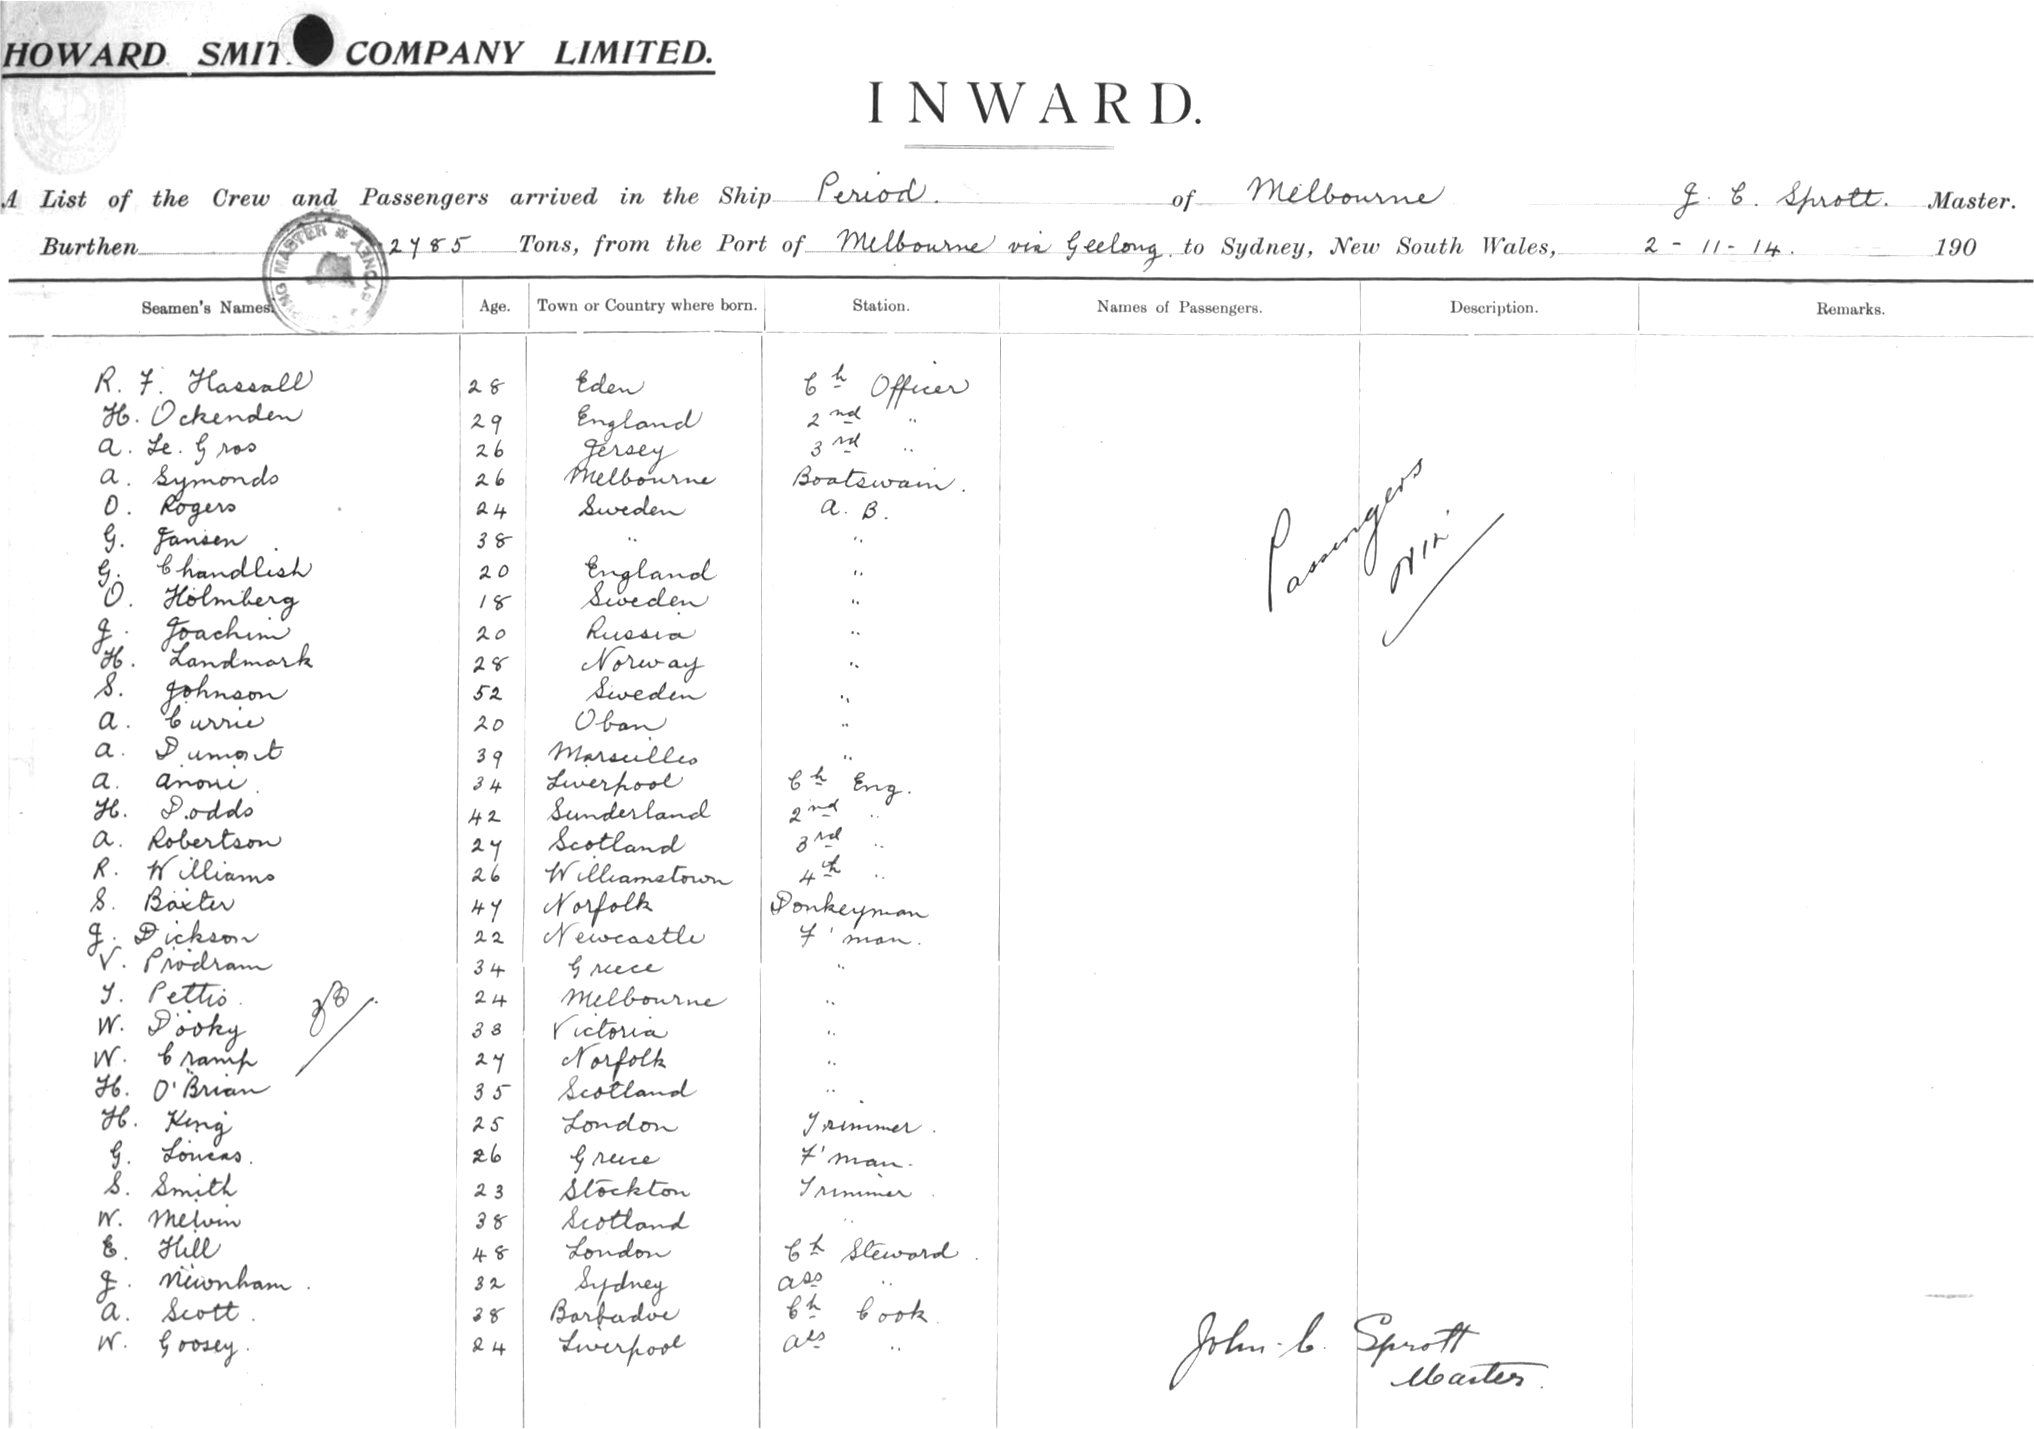 HOWARD SMIT COMPANY LIMITED.
INWARD.
A List of the Crew and Passengers arrived in the Ship Period. of Melbourne J. C. Sprott. Master.
Burthen 2785 Tons, from the Port of Melbourne via Geelong. to Sydney, New South Wales, 2-11-14. 190
MASTER * SYDNEY
Seamen's Names. Age. Town or Country where born. Station. Names of Passengers. Description. Remarks.
R. F. Hassall 28 Eden Ch Officer
H. Ockenden 29 England 2nd "
A. Le. Gros 26 Jersey 3rd "
A. Symonds 26 Melbourne Boatswain.
O. Rogers 24 Sweden A. B.
G. Jansen 38 " "
G. Chandlish 20 England "
O. Holmberg 18 Sweden "
J. Joachim 20 Russia "
H. Landmark 28 Norway "
S. Johnson 52 Sweden "
A. Currie 20 Oban "
A. Dumont 39 Marseilles "
A. Anoni. 34 Liverpool Ch Eng.
H. Dodds 42 Sunderland 2nd "
A. Robertson 27 Scotland 3rd "
R. Williams 26 Williamstown 4th "
S. Baxter 47 Norfolk Donkeyman
J. Dickson 22 Newcastle F'man.
V. Prodram 34 Greece "
T. Pettis. 24 Melbourne "
W. Dooky 38 Victoria "
W. Cramp 27 Norfolk "
H. O'Brian 35 Scotland "
H. King 25 London Trimmer.
G. Loucas. 26 Greece F'man.
S. Smith 23 Stockton Trimmer.
W. Melvin 38 Scotland "
E. Hill 48 London Ch Steward.
J. Newnham. 32 Sydney Ass "
A. Scott. 38 Barbadoe Ch Cook.
W. Goosey. 24 Liverpool Ass "
Passengers
Nil.
John. C. Sprott
Master.